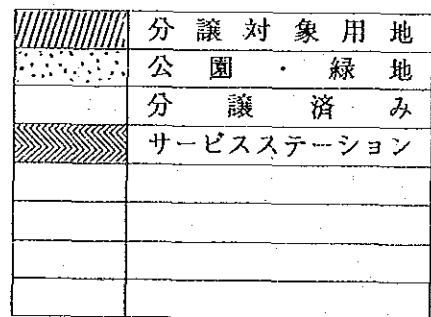 分譲対象用地
公園・緑地
分譲済み
サービスステーション